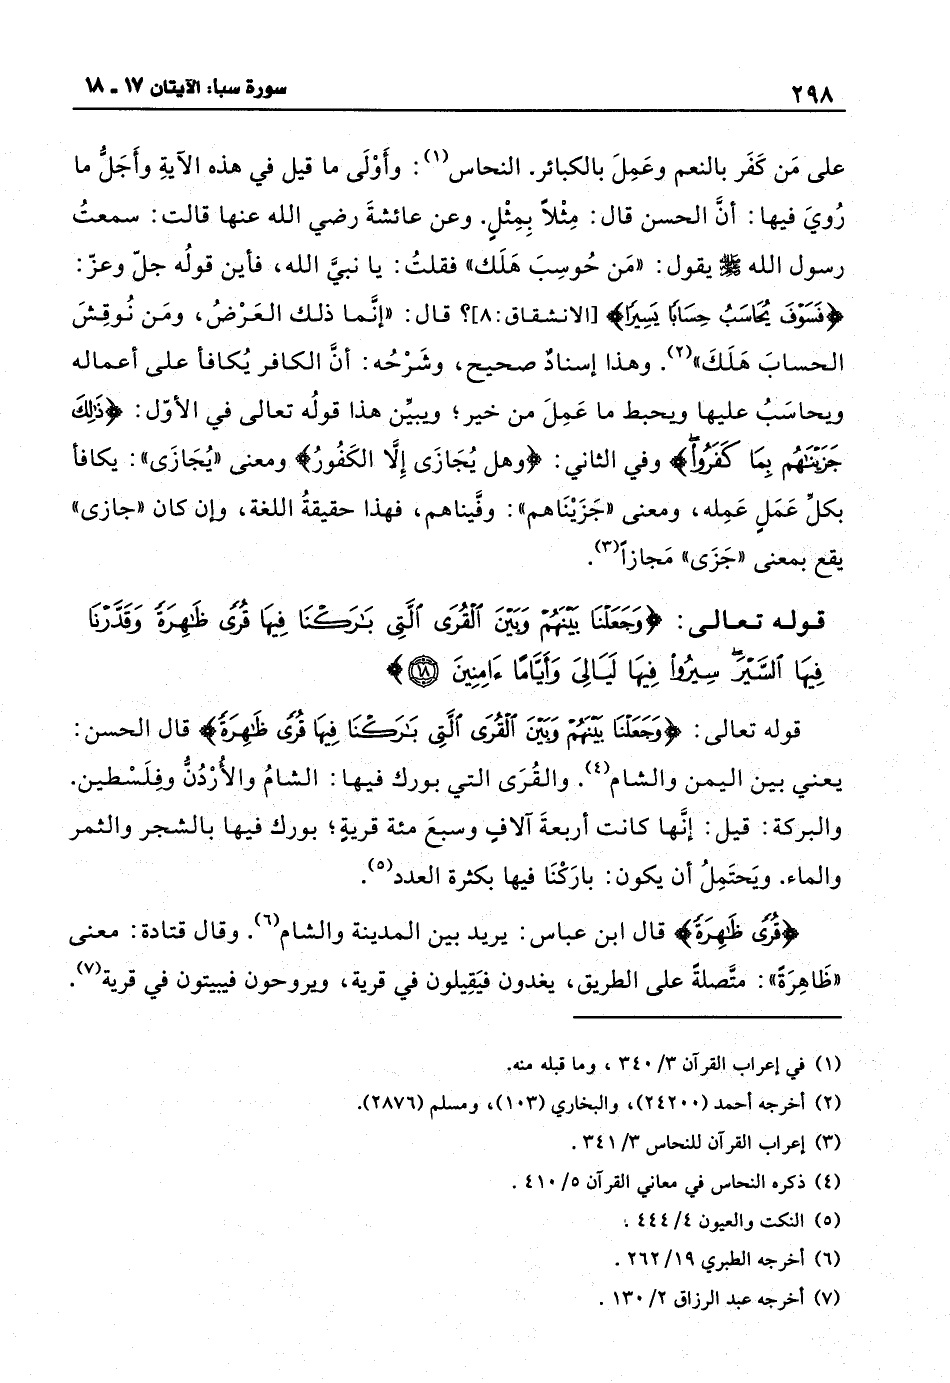 ٢٩٨
سورة سبا: الآيتان ١٧ ـ ١٨
على مَن كَفَر بالنعم وعَمِلَ بالكبائر. النحاس(١): وأَوْلَى ما قيل في هذه الآيةِ وأَجَلُّ ما
رُويَ فيها: أنَّ الحسن قال: مِثْلاً بِمِثْلٍ. وعن عائشةَ رضي الله عنها قالت: سمعتُ
رسول الله ﷺ يقول: «مَن حُوسِبَ هَلَك» فقلتُ: يا نبيَّ الله، فأين قولُه جلّ وعزّ:
﴿فَسَوْفَ يُحَاسَبُ حِسَابًا يَسِيرًا﴾ [الانشقاق:٨]؟ قال: «إنَّما ذلك العَرْضُ، ومَن نُوقِشَ
الحسابَ هَلَكَ»(٢). وهذا إسنادٌ صحيح، وشَرْحُه: أنَّ الكافر يُكافأ على أعماله
ويحاسَبُ عليها ويحبط ما عَمِلَ من خير؛ ويبيِّن هذا قولُه تعالى في الأوّل: ﴿ذَٰلِكَ
جَزَيْنَٰهُم بِمَا كَفَرُواْۖ﴾ وفي الثاني: ﴿وهل يُجَازَى إِلَّا الكَفُورُ﴾ ومعنى «يُجَازَى»: يكافأ
بكلِّ عَمَلٍ عَمِله، ومعنى «جَزَيْنَاهم»: وفَّيناهم، فهذا حقيقةُ اللغة، وإن كان «جازى»
يقع بمعنى «جَزَى» مَجازاً(٣).
قوله تعالى: ﴿وَجَعَلْنَا بَيْنَهُمْ وَبَيْنَ ٱلْقُرَى ٱلَّتِى بَٰرَكْنَا فِيهَا قُرًى ظَٰهِرَةً وَقَدَّرْنَا
فِيهَا ٱلسَّيْرَۖ سِيرُواْ فِيهَا لَيَالِىَ وَأَيَّامًا ءَامِنِينَ ۝١٨﴾
قوله تعالى: ﴿وَجَعَلْنَا بَيْنَهُمْ وَبَيْنَ ٱلْقُرَى ٱلَّتِى بَٰرَكْنَا فِيهَا قُرًى ظَٰهِرَةً﴾ قال الحسن:
يعني بين اليمن والشام(٤). والقُرَى التي بورك فيها: الشامُ والأُرْدُنُّ وفِلَسْطين.
والبركة: قيل: إنَّها كانت أربعةَ آلافٍ وسبعَ مئة قريةٍ؛ بورك فيها بالشجر والثمر
والماء. ويَحتَمِلُ أن يكون: بارَكْنَا فيها بكثرة العدد(٥).
﴿قُرًى ظَٰهِرَةً﴾ قال ابن عباس: يريد بين المدينة والشام(٦). وقال قتادة: معنى
«ظَاهِرَةً»: متَّصلةً على الطريق، يغدون فيَقِيلون في قرية، ويروحون فيبيتون في قرية(٧).
(١) في إعراب القرآن ٣/ ٣٤٠ ، وما قبله منه.
(٢) أخرجه أحمد (٢٤٢٠٠)، والبخاري (١٠٣)، ومسلم (٢٨٧٦).
(٣) إعراب القرآن للنحاس ٣/ ٣٤١ .
(٤) ذكره النحاس في معاني القرآن ٥/ ٤١٠ .
(٥) النكت والعيون ٤/ ٤٤٤ .
(٦) أخرجه الطبري ١٩/ ٢٦٢ .
(٧) أخرجه عبد الرزاق ٢/ ١٣٠ .